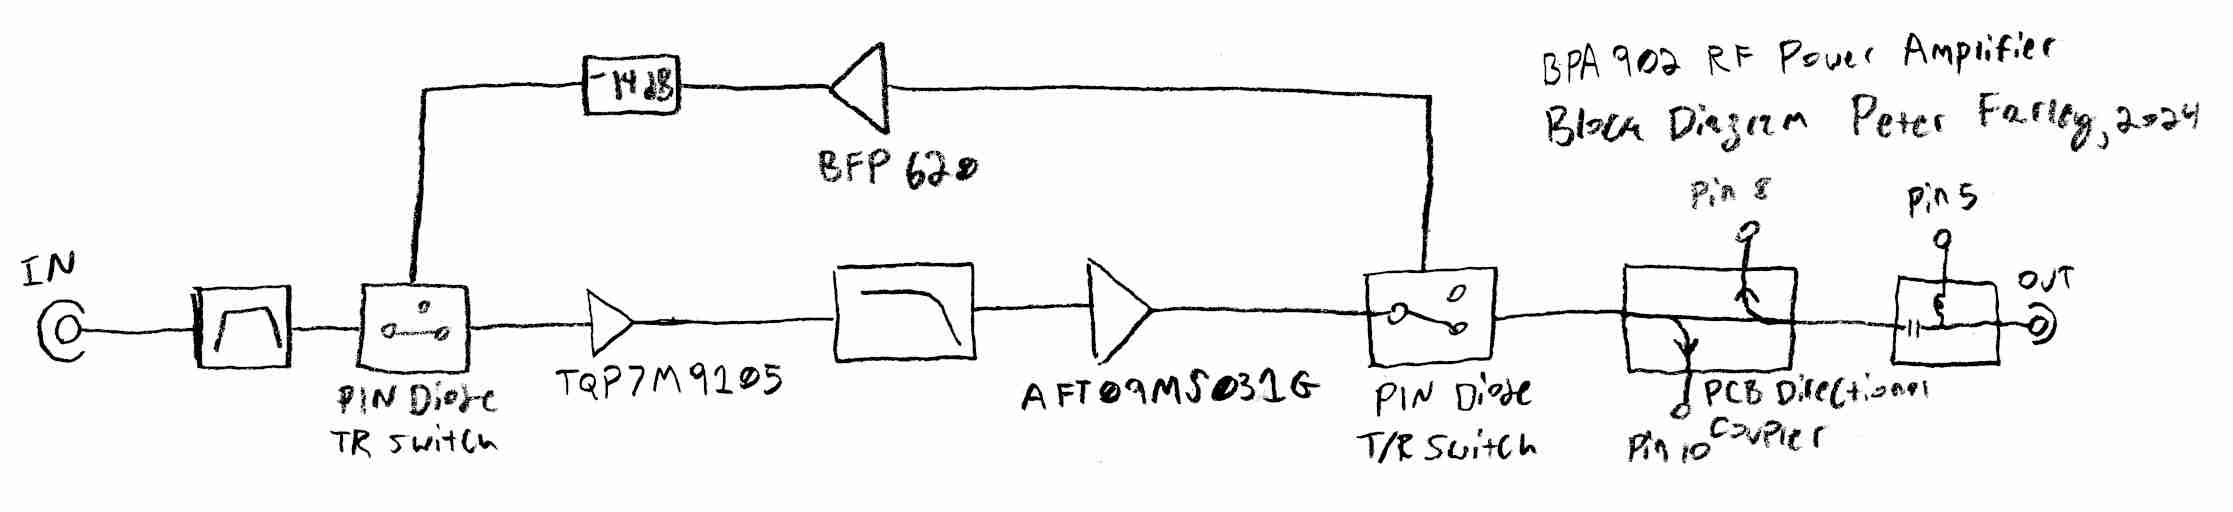 BPA 902 RF Power Amplifier
Block Diagram Peter Farley, 2024
-14 dB
BFP 620
Pin 8
Pin 5
IN
OUT
PIN Diode
TR switch
TQP7M9105
AFT09MS031G
PIN Diode
T/R Switch
PCB Directional
Coupler
Pin 10